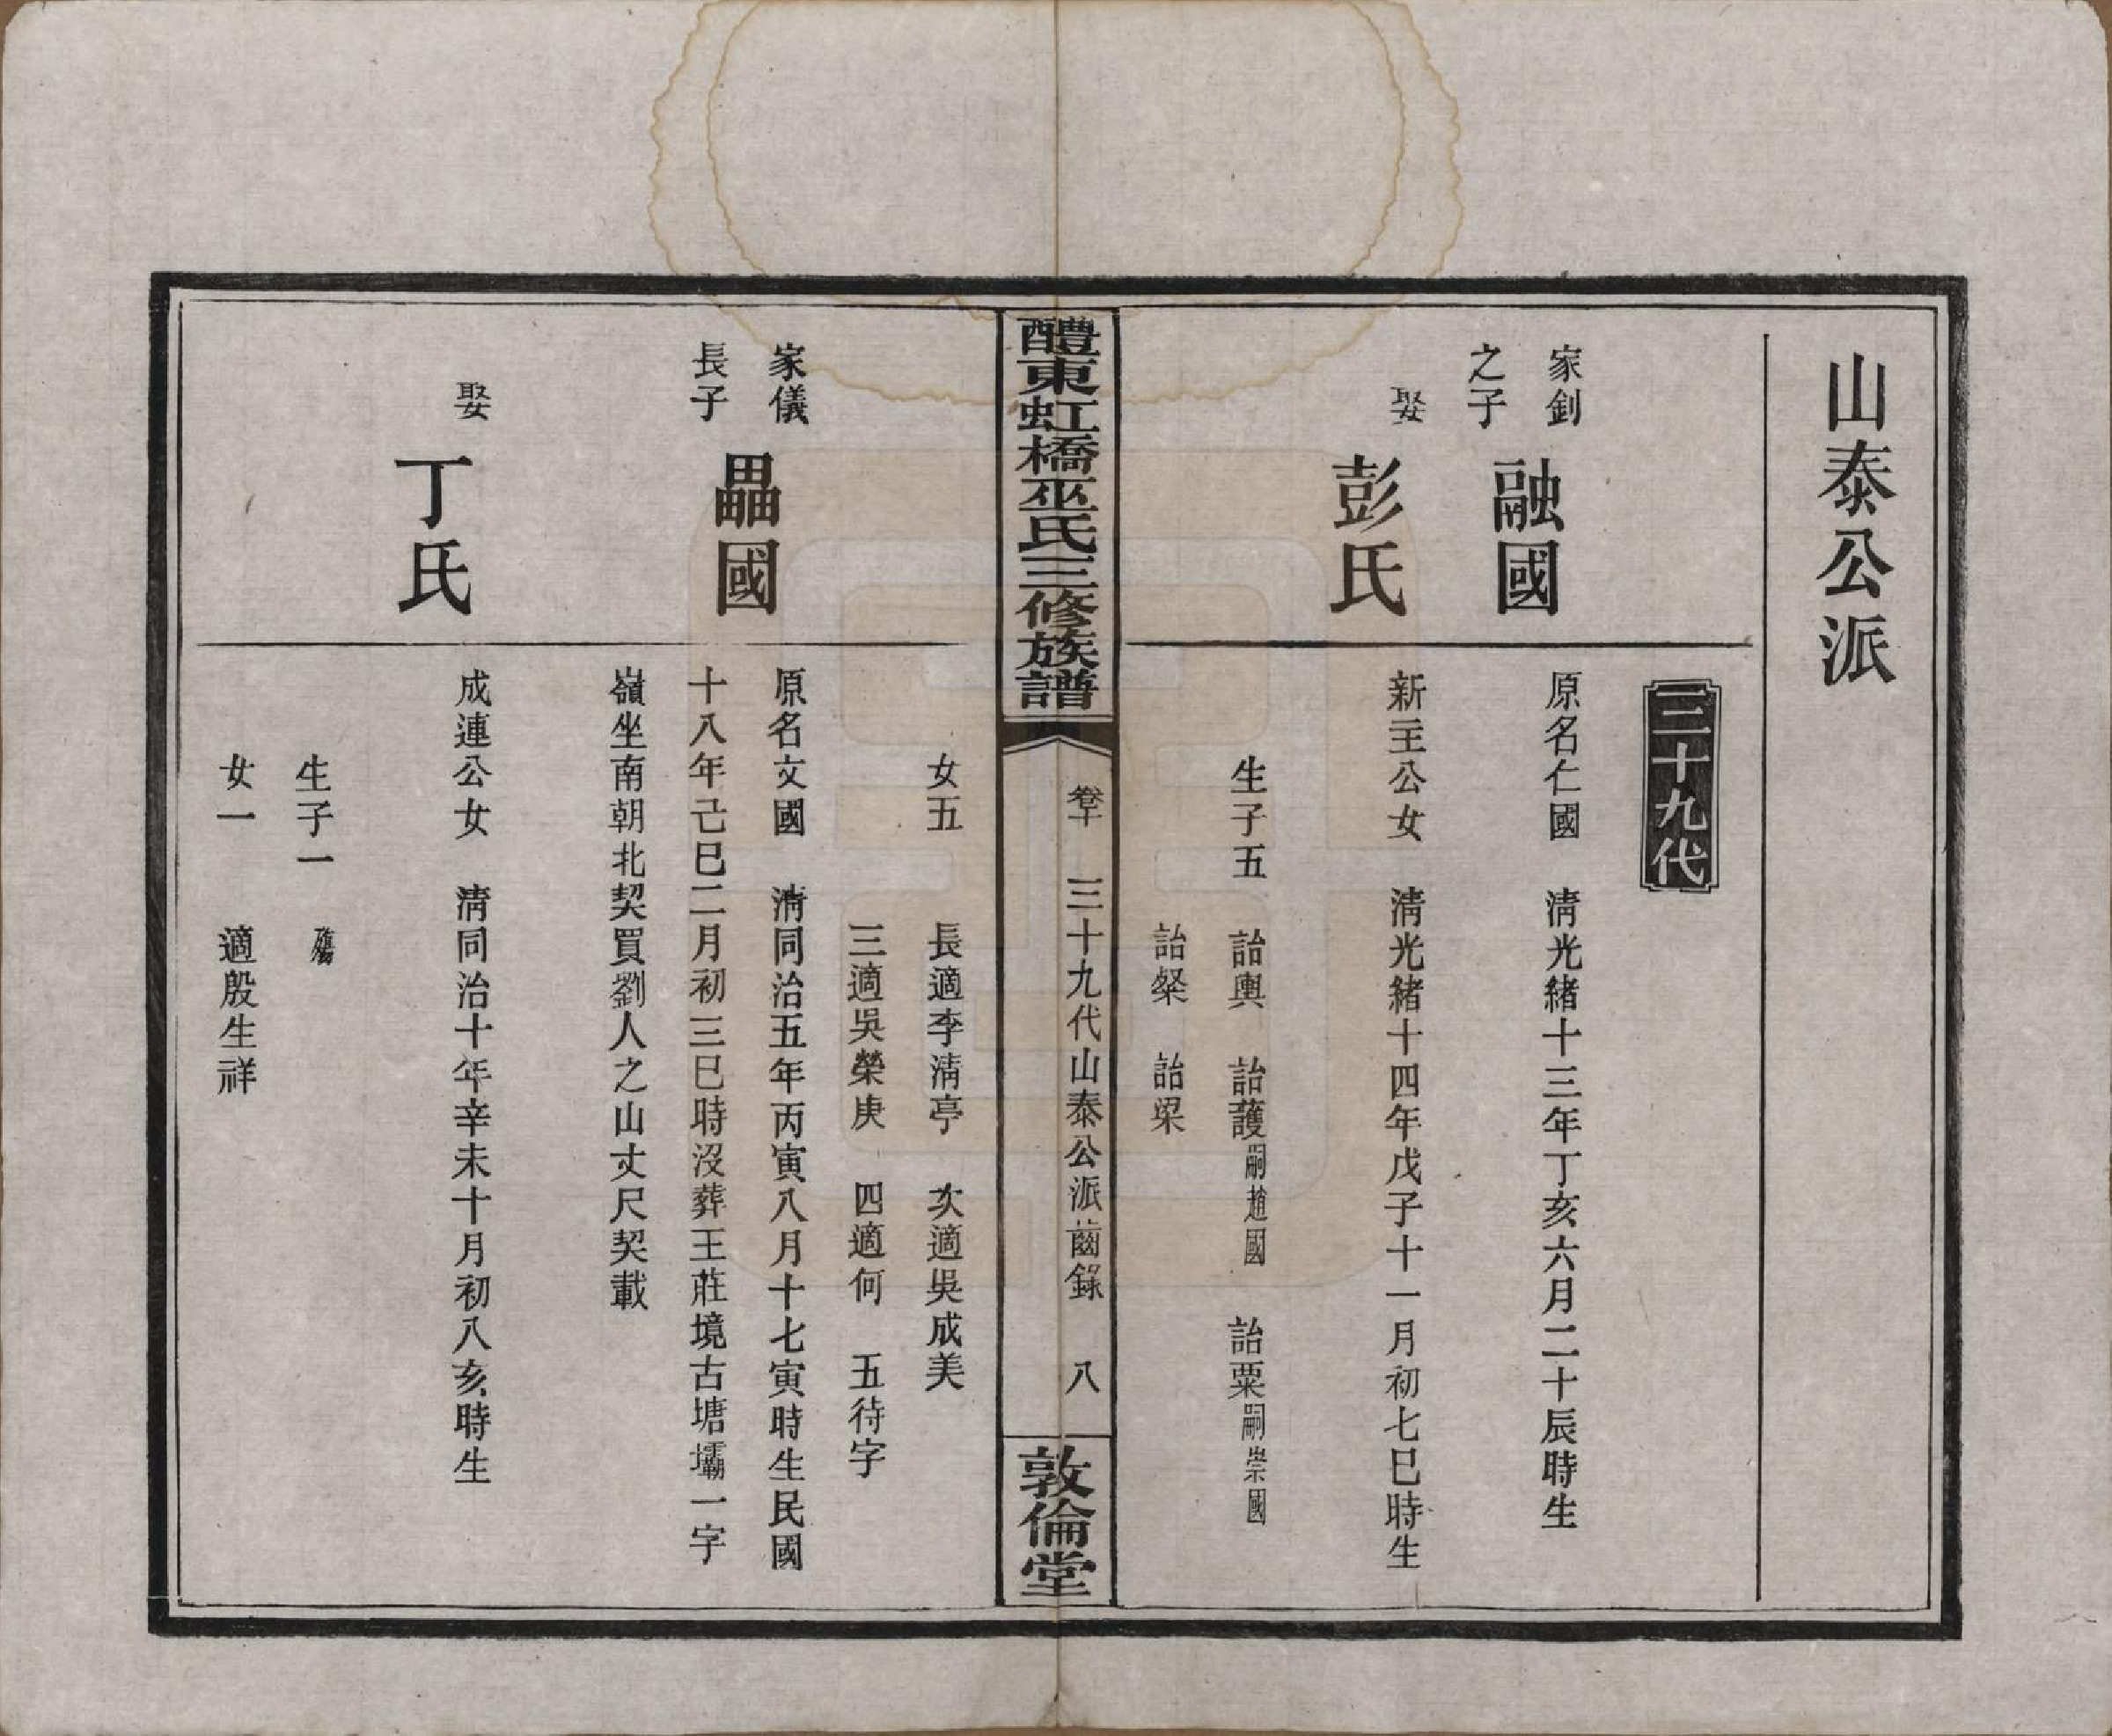 山泰公派
三十九代
家釗
之子
融國
原名仁國　清光緒十三年丁亥六月二十辰時生
娶
彭氏
新主公女　清光緒十四年戊子十一月初七巳時生
生子五　詒輿　詒護嗣趙國　詒粟嗣崇國
詒粲　詒梁
醴東虹橋巫氏三修族譜
卷十　三十九代山泰公派齒錄　八
敦倫堂
女五　長適李清亭　次適吳成美
三適吳榮庚　四適何　五待字
家儀
長子
畾國
原名文國　清同治五年丙寅八月十七寅時生民國
十八年己巳二月初三巳時沒葬王莊境古塘壩一字
嶺坐南朝北契買劉人之山丈尺契載
娶
丁氏
成連公女　清同治十年辛未十月初八亥時生
生子一　殤
女一　適殷生祥